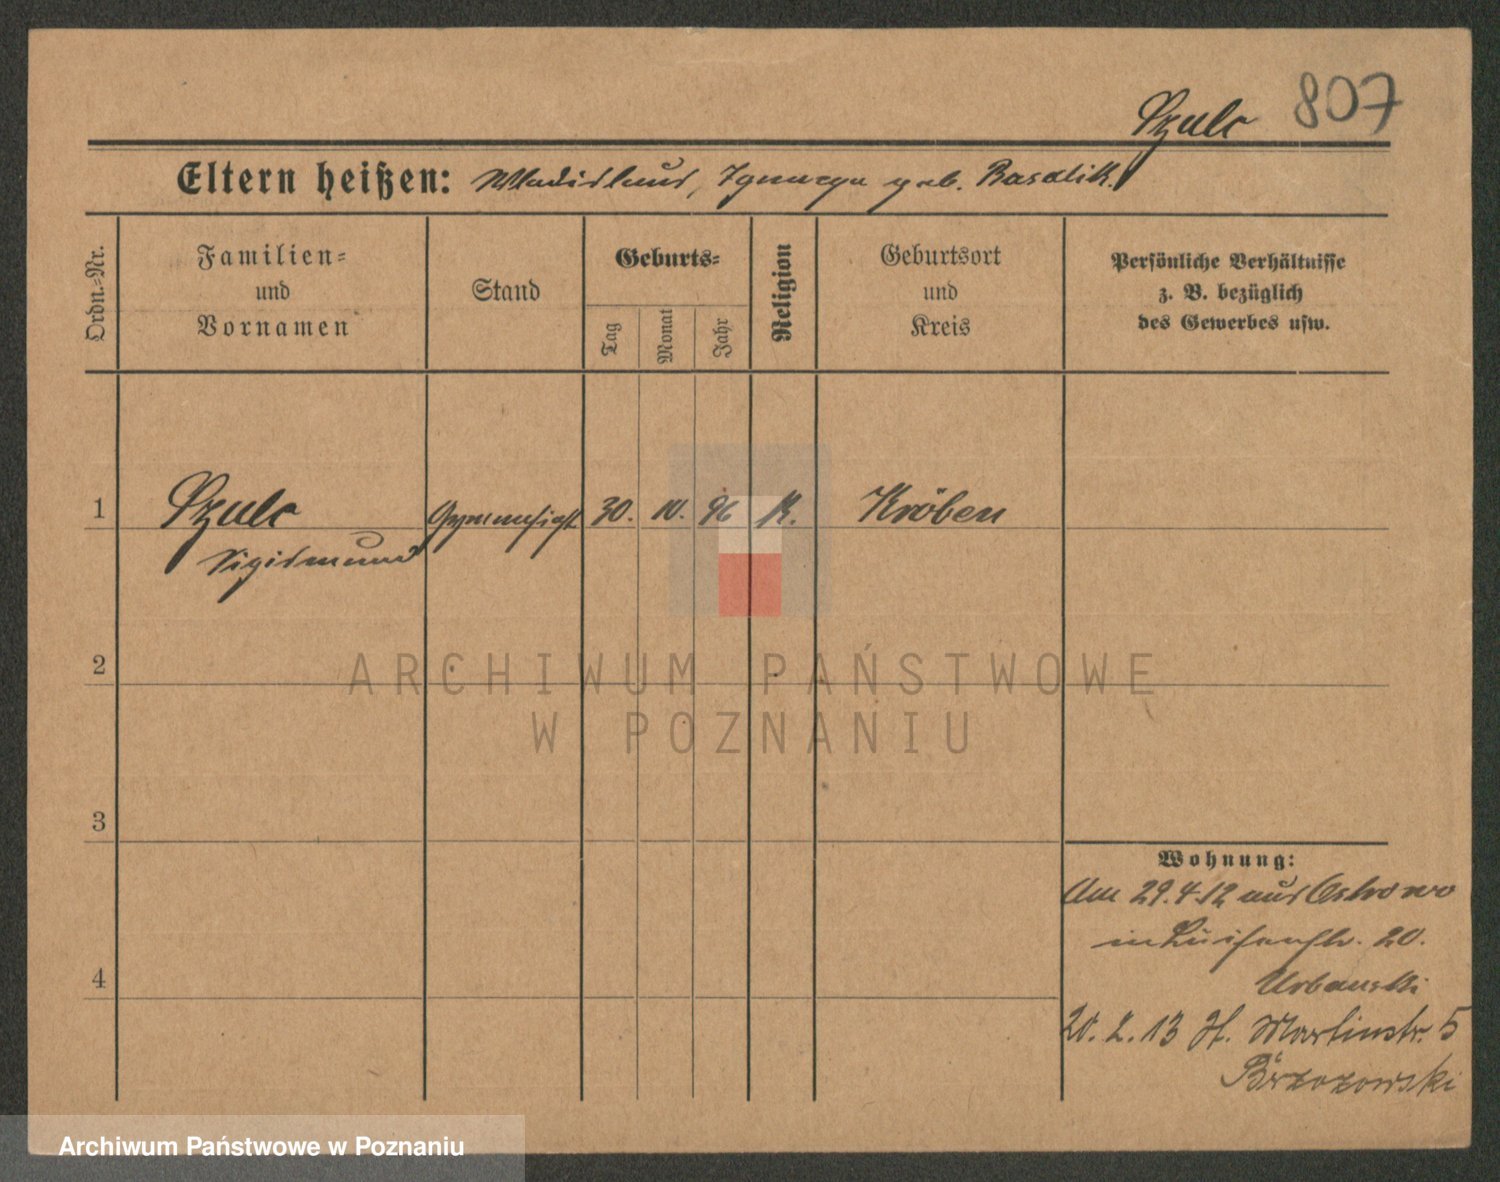 Szulc 807
Eltern heißen: Wladislaus, Ignacya geb. Basalik.
Ordn.-Nr.
Familien-
und
Vornamen
Stand
Geburts-
Tag
Monat
Jahr
Religion
Geburtsort
und
Kreis
Persönliche Verhältnisse
z. B. bezüglich
des Gewerbes usw.
1 Szulc Gymnasiast 30. 10. 96 K. Kröben
Sigismund
2
ARCHIWUM PAŃSTWOWE
W POZNANIU
3
Wohnung:
Am 29.4.12 aus Ostrowo
in Luisenstr. 20.
Urbanski
4
20. 2. 13 St. Martinstr. 5
Brzozowski
Archiwum Państwowe w Poznaniu